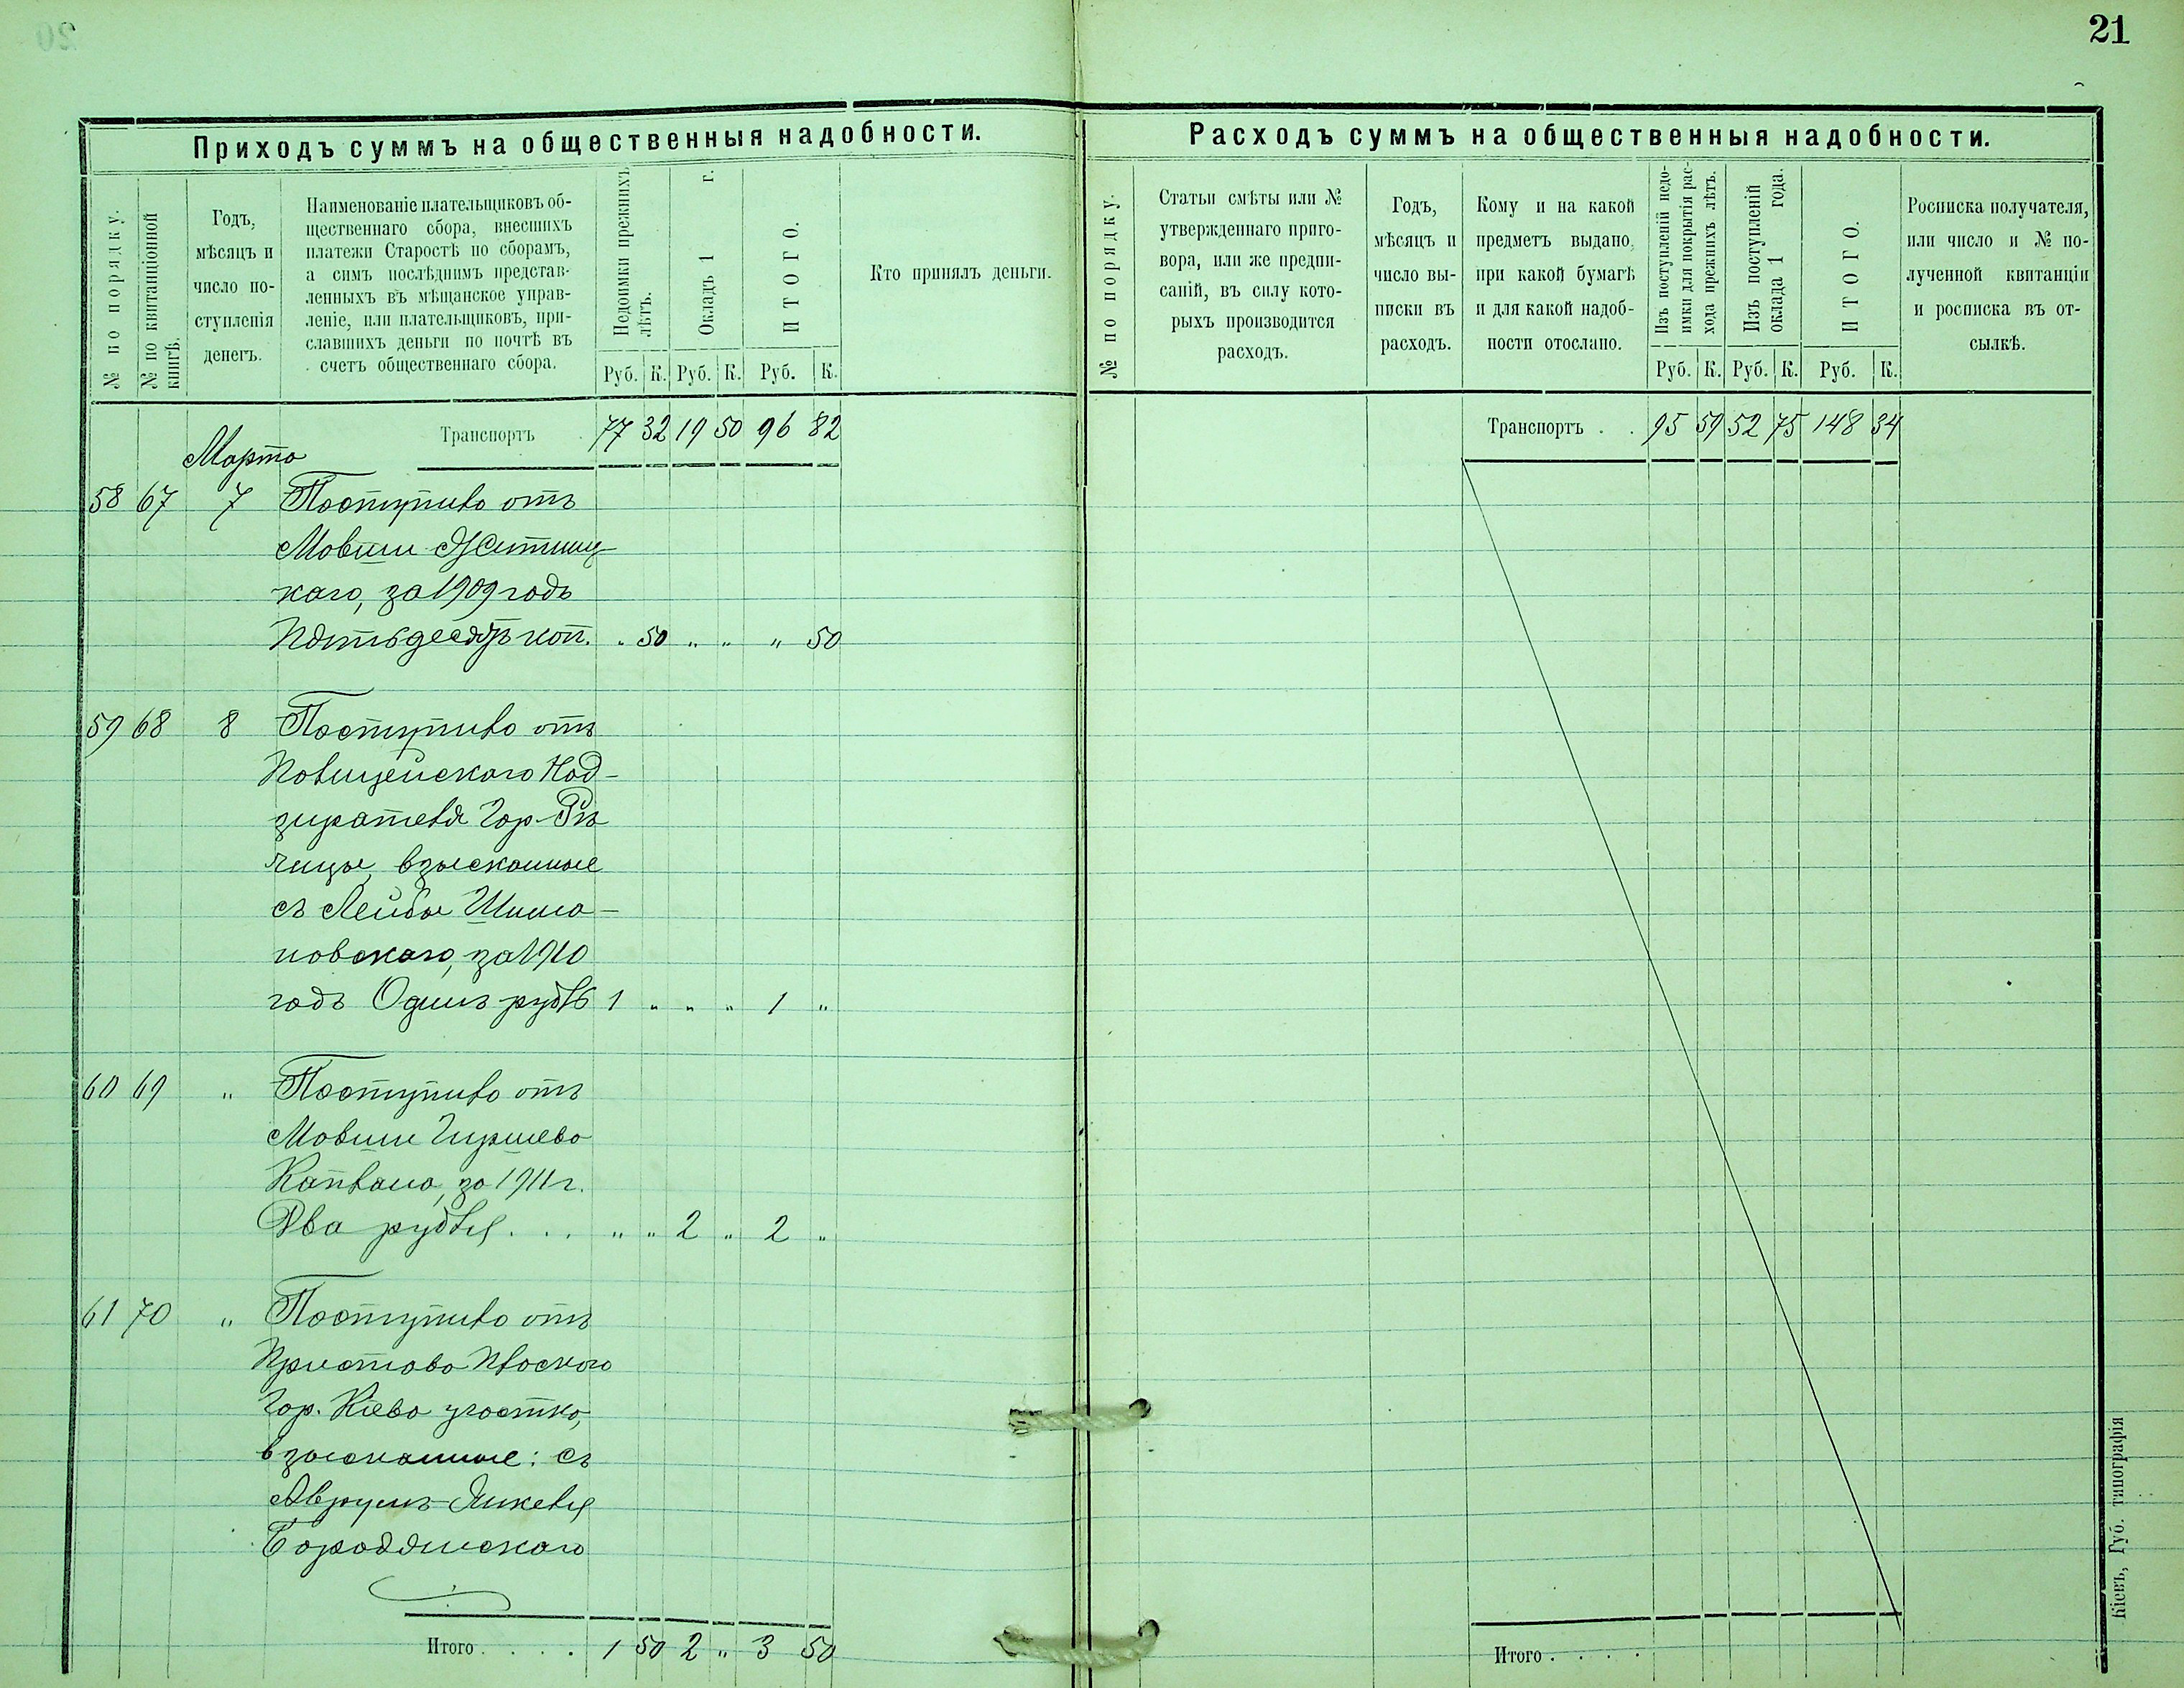 21
Приходъ суммъ на общественныя надобности.
№ по порядку.
№ по квитанціонной книгѣ.
Годъ,
мѣсяцъ и
число по-
ступленія
денегъ.
Наименованіе плательщиковъ об-
щественнаго сбора, внесшихъ
платежи Старостѣ по сборамъ,
а симъ послѣднимъ представ-
ленныхъ въ мѣщанское управ-
леніе, или плательщиковъ, при-
славшихъ деньги по почтѣ въ
счетъ общественнаго сбора.
Недоимки прежнихъ лѣтъ.
Окладъ 1 г.
ИТОГО.
Руб. К. Руб. К. Руб. К.
Кто принялъ деньги.
Транспортъ 77 32 19 50 96 82
Марта
58 67 7 Поступило отъ
Мовши
каго, за 1909 годъ
Пятьдесятъ коп. " 50 " " " 50
59 68 8 Поступило отъ
Полицейскаго Над-
зирателя Гор. Рѣ-
чицы, взысканные
съ Лейбы Шима-
новскаго, за 1910
годъ Одинъ рубль 1 " " " 1 "
60 69 " Поступило отъ
Мовши Гиршева
Каплана, за 1911 г.
Два рубля . . . " " 2 " 2 "
61 70 " Поступило отъ
Пристава Плоскаго
Гор. Кіева участка,
взысканные: съ
Аврумъ-Янкеля
Бородянскаго
Итого . . . . 1 50 2 " 3 50
Расходъ суммъ на общественныя надобности.
№ по порядку.
Статьи смѣты или №
утвержденнаго приго-
вора, или же предпи-
саній, въ силу кото-
рыхъ производится
расходъ.
Годъ,
мѣсяцъ и
число вы-
писки въ
расходъ.
Кому и на какой
предметъ выдано,
при какой бумагѣ
и для какой надоб-
ности отослано.
Изъ поступленій недо-
имки для покрытія рас-
хода прежнихъ лѣтъ.
Изъ поступленій
оклада 1 года.
ИТОГО.
Руб. К. Руб. К. Руб. К.
Росписка получателя,
или число и № по-
лученной квитанціи
и росписка въ от-
сылкѣ.
Транспортъ . . 95 59 52 75 148 34
Итого . . . .
Кіевъ, Губ. типографія